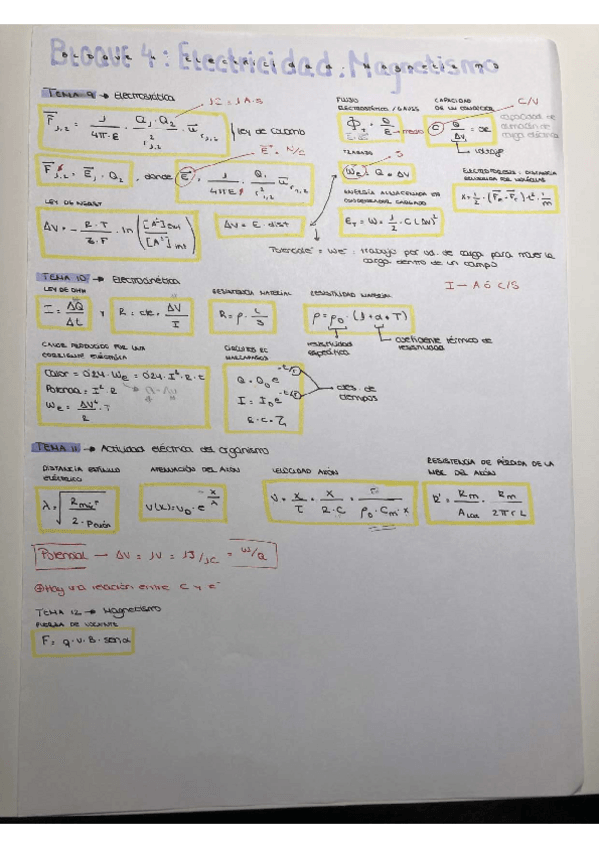 Bloque 4: Electricidad. Magnetismo
TEMA 9 → Electrostática
1C = 1A·S
F 1,2 = 1 / 4π·ε · Q1·Q2 / r² 1,2 · u r1,2
Ley de Coulomb
FLUJO ELECTROSTÁTICO / GAUSS
Φ = Q / ε → medio
CAPACIDAD DE UN CONDUCTOR
C/V
C = Q / ΔV = cte
capacidad de almacén de carga eléctrica
voltaje
F 1,2 = E1 · Q2, donde E = 1 / 4πε · Q1 / r² 1,2 · u r1,2
E = N/C
TRABAJO
J
We = Q · ΔV
ELECTROFORESIS: DISTANCIA RECORRIDA POR MOLÉCULAS
x = 1/2 · (Fe - Fr) · t² · 1/m
ENERGÍA ALMACENADA EN CONDENSADOR CARGADO
Ep = W = 1/2 · C (ΔV)²
LEY DE NERNST
ΔV = - R·T / z·F · ln ( [A]ext / [A]int )
ΔV = E · dist
Potencial = We : trabajo por ud. de carga para mover la carga dentro de un campo
TEMA 10 → Electrocinética
I → A ó C/S
LEY DE OHM
I = ΔQ / Δt y R = cte. ΔV / I
RESISTENCIA MATERIAL
R = ρ · L / S
RESISTIVIDAD MATERIAL
ρ = ρ0 · (1 + α + T)
resistividad específica
coeficiente térmico de resistividad
CALOR PRODUCIDO POR UNA CORRIENTE ELÉCTRICA
Calor = 0'24 · We = 0'24 · I² · R · t
Potencia = I² · R
We = ΔV² / R · T
CIRCUITO RC
Q = Q0 e -t/τ
I = I0 e -t/τ
R·C = τ
ctes. de tiempos
TEMA 11 → Actividad eléctrica del organismo
DISTANCIA ESTÍMULO ELÉCTRICO
λ = √ Rm · r / 2 · ρaxón
ATENUACIÓN DEL AXÓN
V(x) = V0 · e x/λ
VELOCIDAD AXÓN
V = x / τ = x / R·C = / ρ0 · Cm · x
RESISTENCIA DE PÉRDIDA DE LA MBR. DEL AXÓN
R' = Rm / ALat = Rm / 2πrL
Potencial → ΔV = 1V = 1J/1C = W/Q
⊕ Hay una relación entre C y e⁻
TEMA 12 → Magnetismo
F = q · v · B · sen α